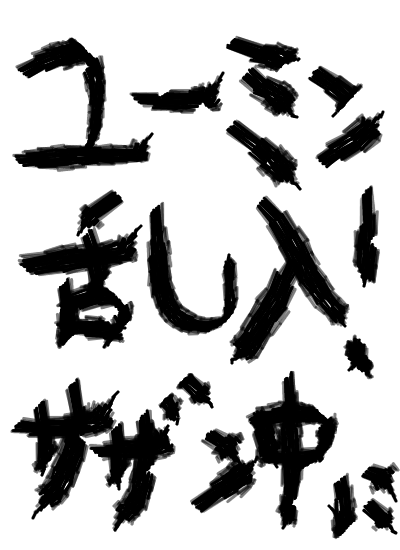 ユーミン
乱入!
サザン沖に